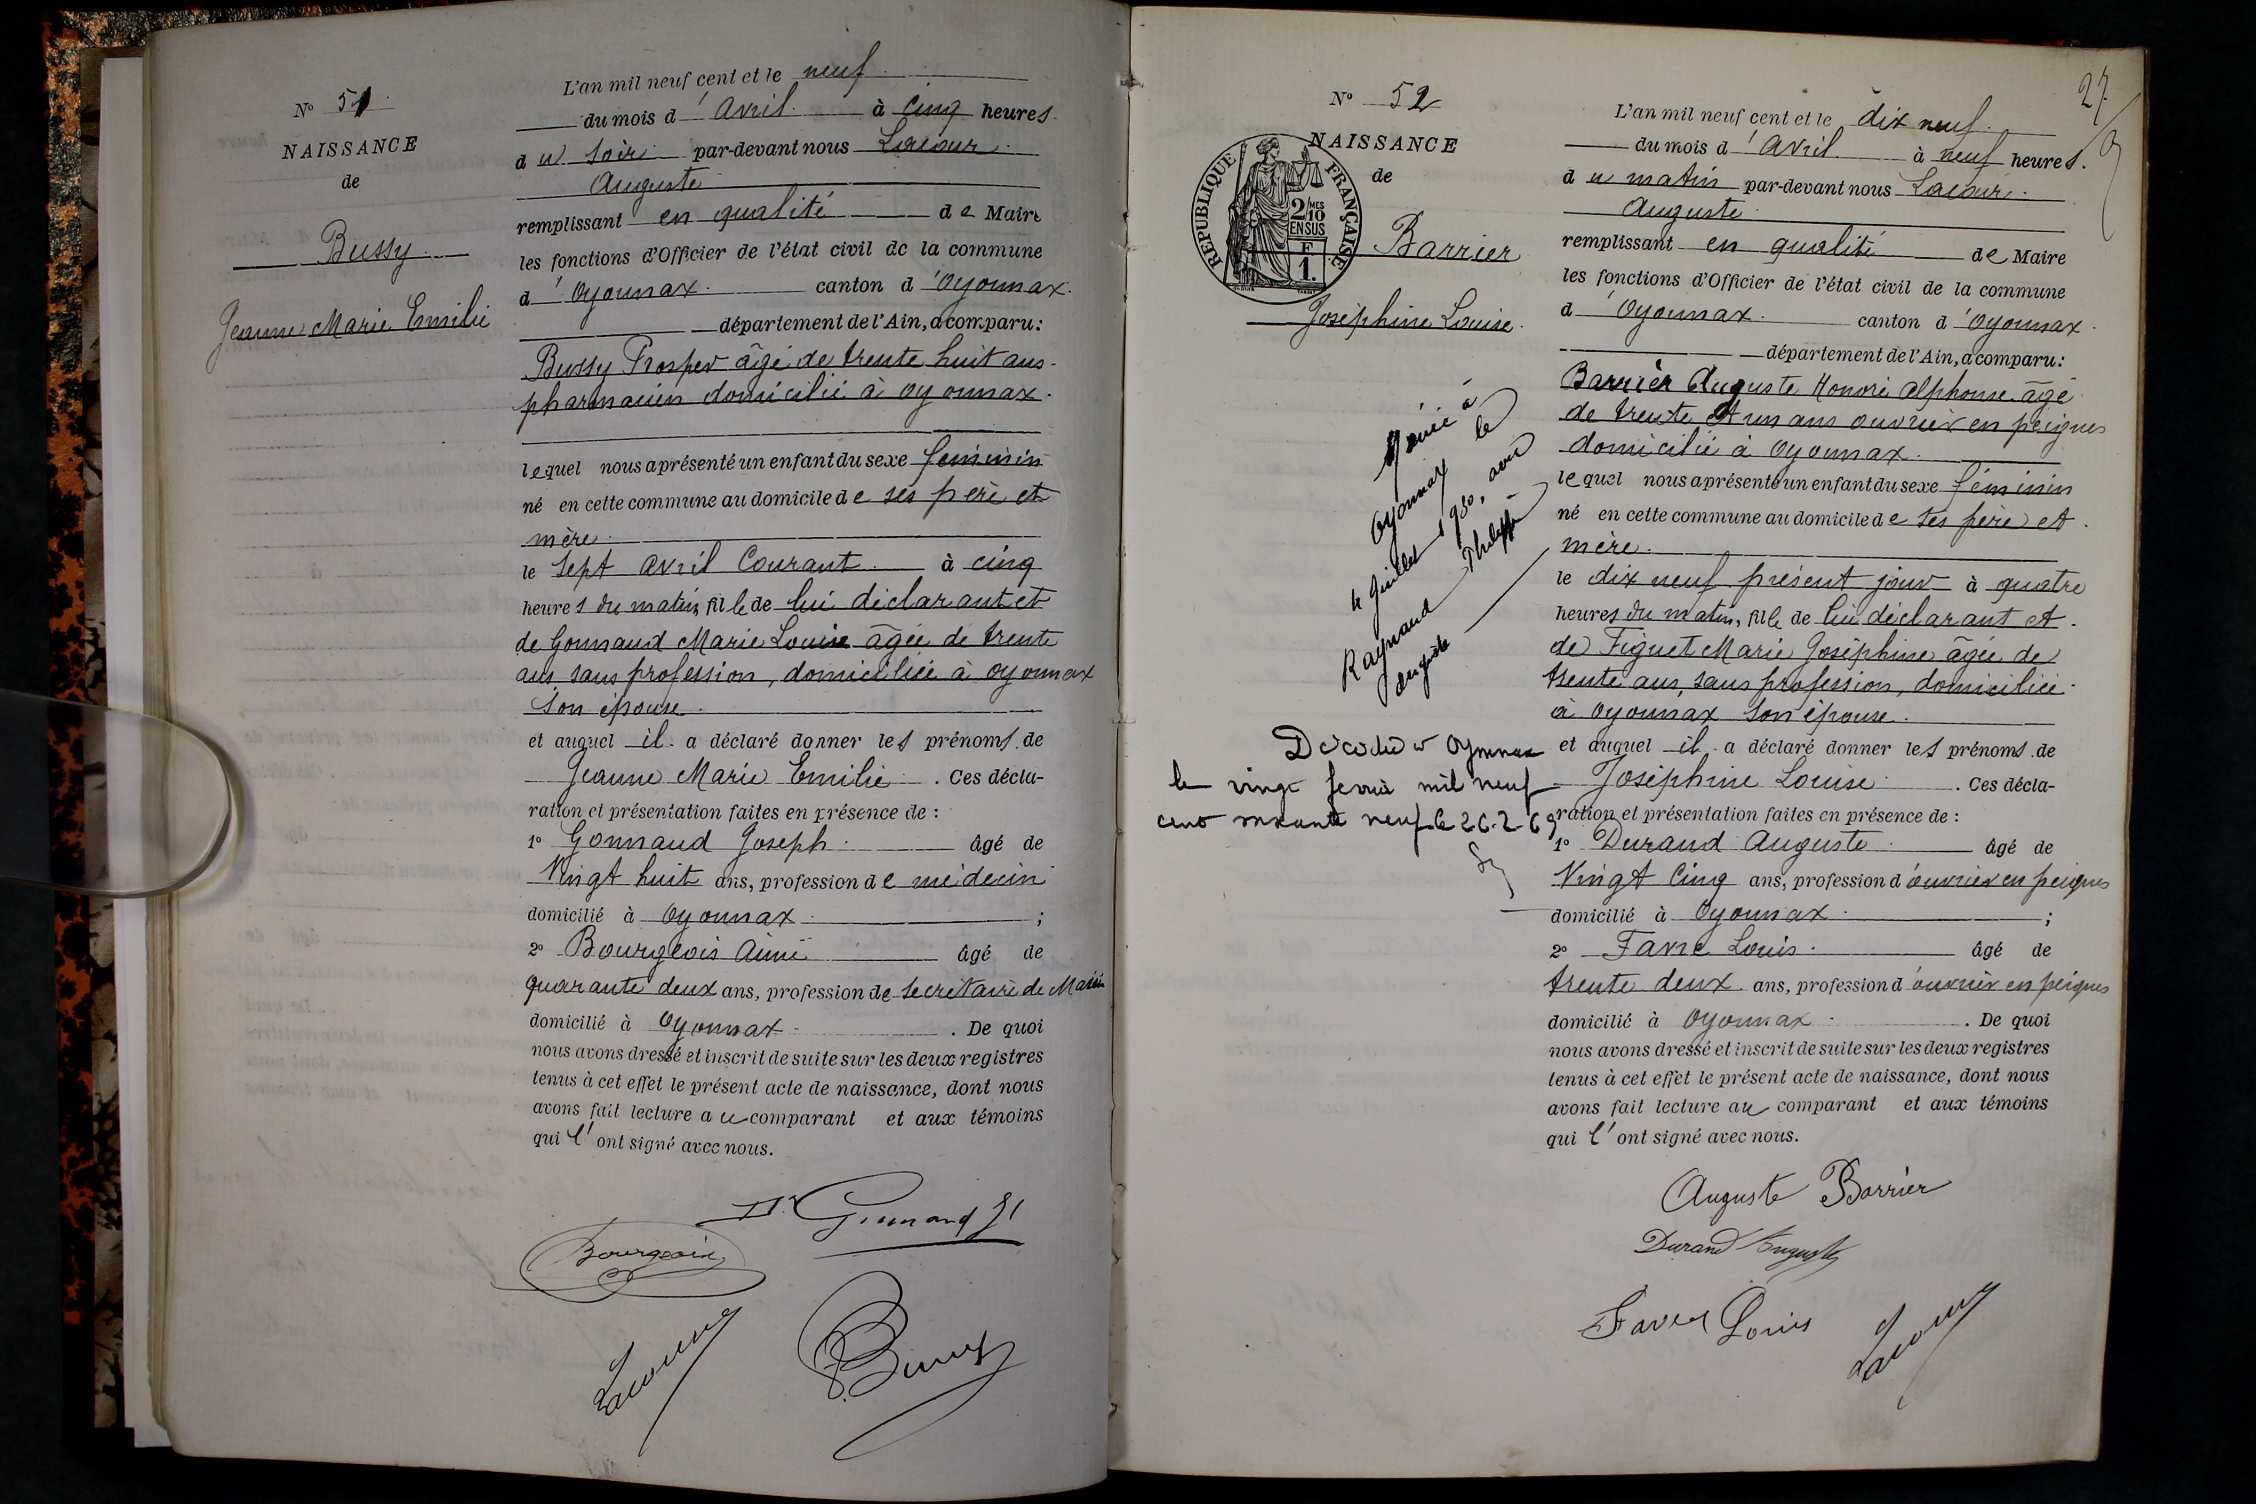 N° 51
NAISSANCE
de
Bussy
Jeanne Marie Emilie
L'an mil neuf cent et le neuf
du mois d'avril à cinq heures
du soir par-devant nous Lacour
Auguste
remplissant en qualité de Maire
les fonctions d'Officier de l'état civil de la commune
d'Oyonnax canton d'Oyonnax
département de l'Ain, a comparu :
Bussy Prosper âgé de trente huit ans
pharmacien domicilié à Oyonnax
lequel nous a présenté un enfant du sexe féminin
né en cette commune au domicile de ses père et
mère
le sept avril courant à cinq
heures du matin, fille de lui déclarant et
de Gonnaud Marie Louise âgée de trente
ans sans profession, domiciliée à Oyonnax
son épouse
et auquel il a déclaré donner les prénoms de
Jeanne Marie Emilie. Ces décla-
ration et présentation faites en présence de :
1° Gonnaud Joseph âgé de
Vingt huit ans, profession de médecin
domicilié à Oyonnax ;
2° Bourgeois Aimé âgé de
quarante deux ans, profession de secrétaire de Mairie
domicilié à Oyonnax. De quoi
nous avons dressé et inscrit de suite sur les deux registres
tenus à cet effet le présent acte de naissance, dont nous
avons fait lecture au comparant et aux témoins
qui l'ont signé avec nous.
Dr Gonnaud
Bourgeois
Lacour
P. Bussy
27
N° 52
NAISSANCE
de
REPUBLIQUE FRANÇAISE
2/10 MES
EN SUS
F
1.
Barrier
Joséphine Louise
Marié à
Oyonnax le
4 Juillet 1930, avec
Raynaud Philippe
Auguste
Décédée à Oyonnax
le vingt février mil neuf
cent soixante neuf le 26-2-69
L'an mil neuf cent et le dix neuf
du mois d'avril à neuf heures
du matin par-devant nous Lacour
Auguste
remplissant en qualité de Maire
les fonctions d'Officier de l'état civil de la commune
d'Oyonnax canton d'Oyonnax
département de l'Ain, a comparu :
Barrier Auguste Honoré Alphonse âgé
de trente et un ans ouvrier en peignes
domicilié à Oyonnax
lequel nous a présenté un enfant du sexe féminin
né en cette commune au domicile de ses père et
mère
le dix neuf présent jour à quatre
heures du matin, fille de lui déclarant et
de Figuet Marie Joséphine âgée de
trente ans, sans profession, domiciliée
à Oyonnax son épouse
et auquel il a déclaré donner les prénoms de
Joséphine Louise. Ces décla-
ration et présentation faites en présence de :
1° Durand Auguste âgé de
Vingt cinq ans, profession d'ouvrier en peignes
domicilié à Oyonnax ;
2° Favre Louis âgé de
trente deux ans, profession d'ouvrier en peignes
domicilié à Oyonnax. De quoi
nous avons dressé et inscrit de suite sur les deux registres
tenus à cet effet le présent acte de naissance, dont nous
avons fait lecture au comparant et aux témoins
qui l'ont signé avec nous.
Auguste Barrier
Durand Auguste
Favre Louis
Lacour